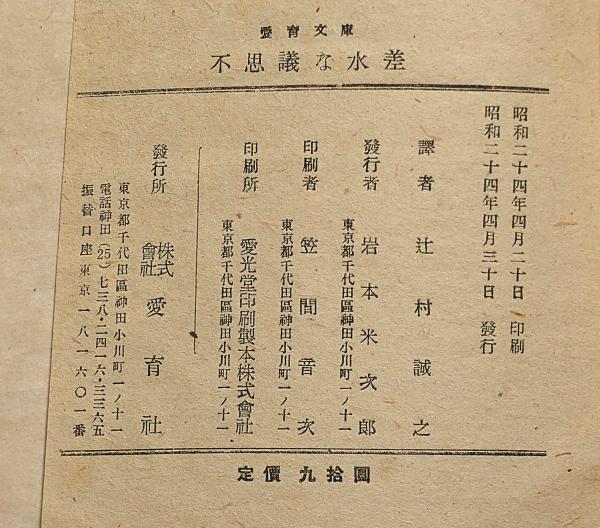 愛育文庫
不思議な水差
昭和二十四年四月二十日 印刷
昭和二十四年四月三十日 發行
譯者 辻村誠之
發行者 岩本米次郎
東京都千代田區神田小川町一ノ十一
印刷者 笠間音次
東京都千代田區神田小川町一ノ十一
印刷所 愛光堂印刷製本株式會社
東京都千代田區神田小川町一ノ十一
發行所 株式會社 愛育社
東京都千代田區神田小川町一ノ十一
電話神田(25)七三八・二四一六・三三六五
振替口座東京一八一六〇一番
定價 九拾圓